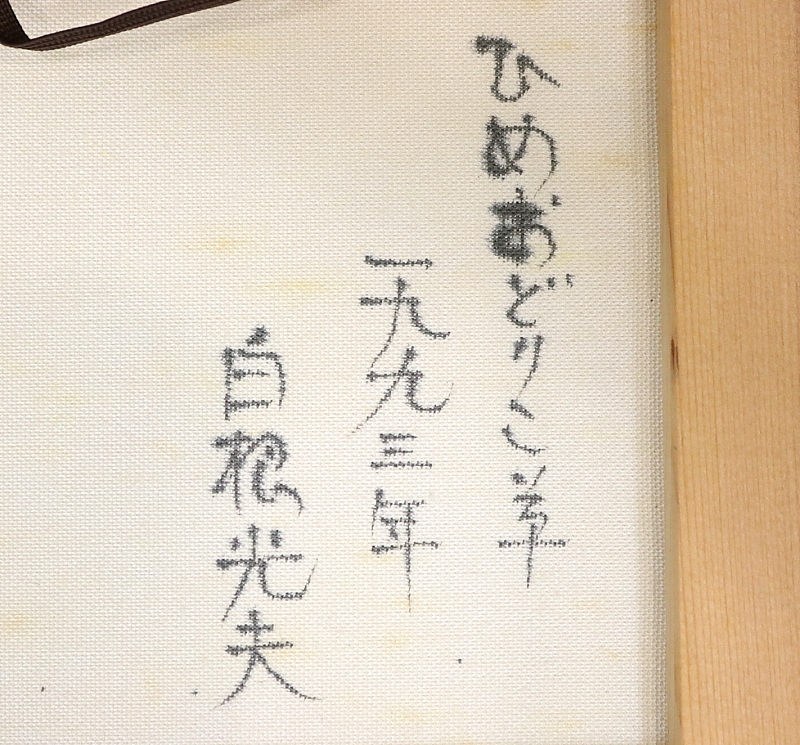 ひめおどりこ草
一九九三年
白根光夫